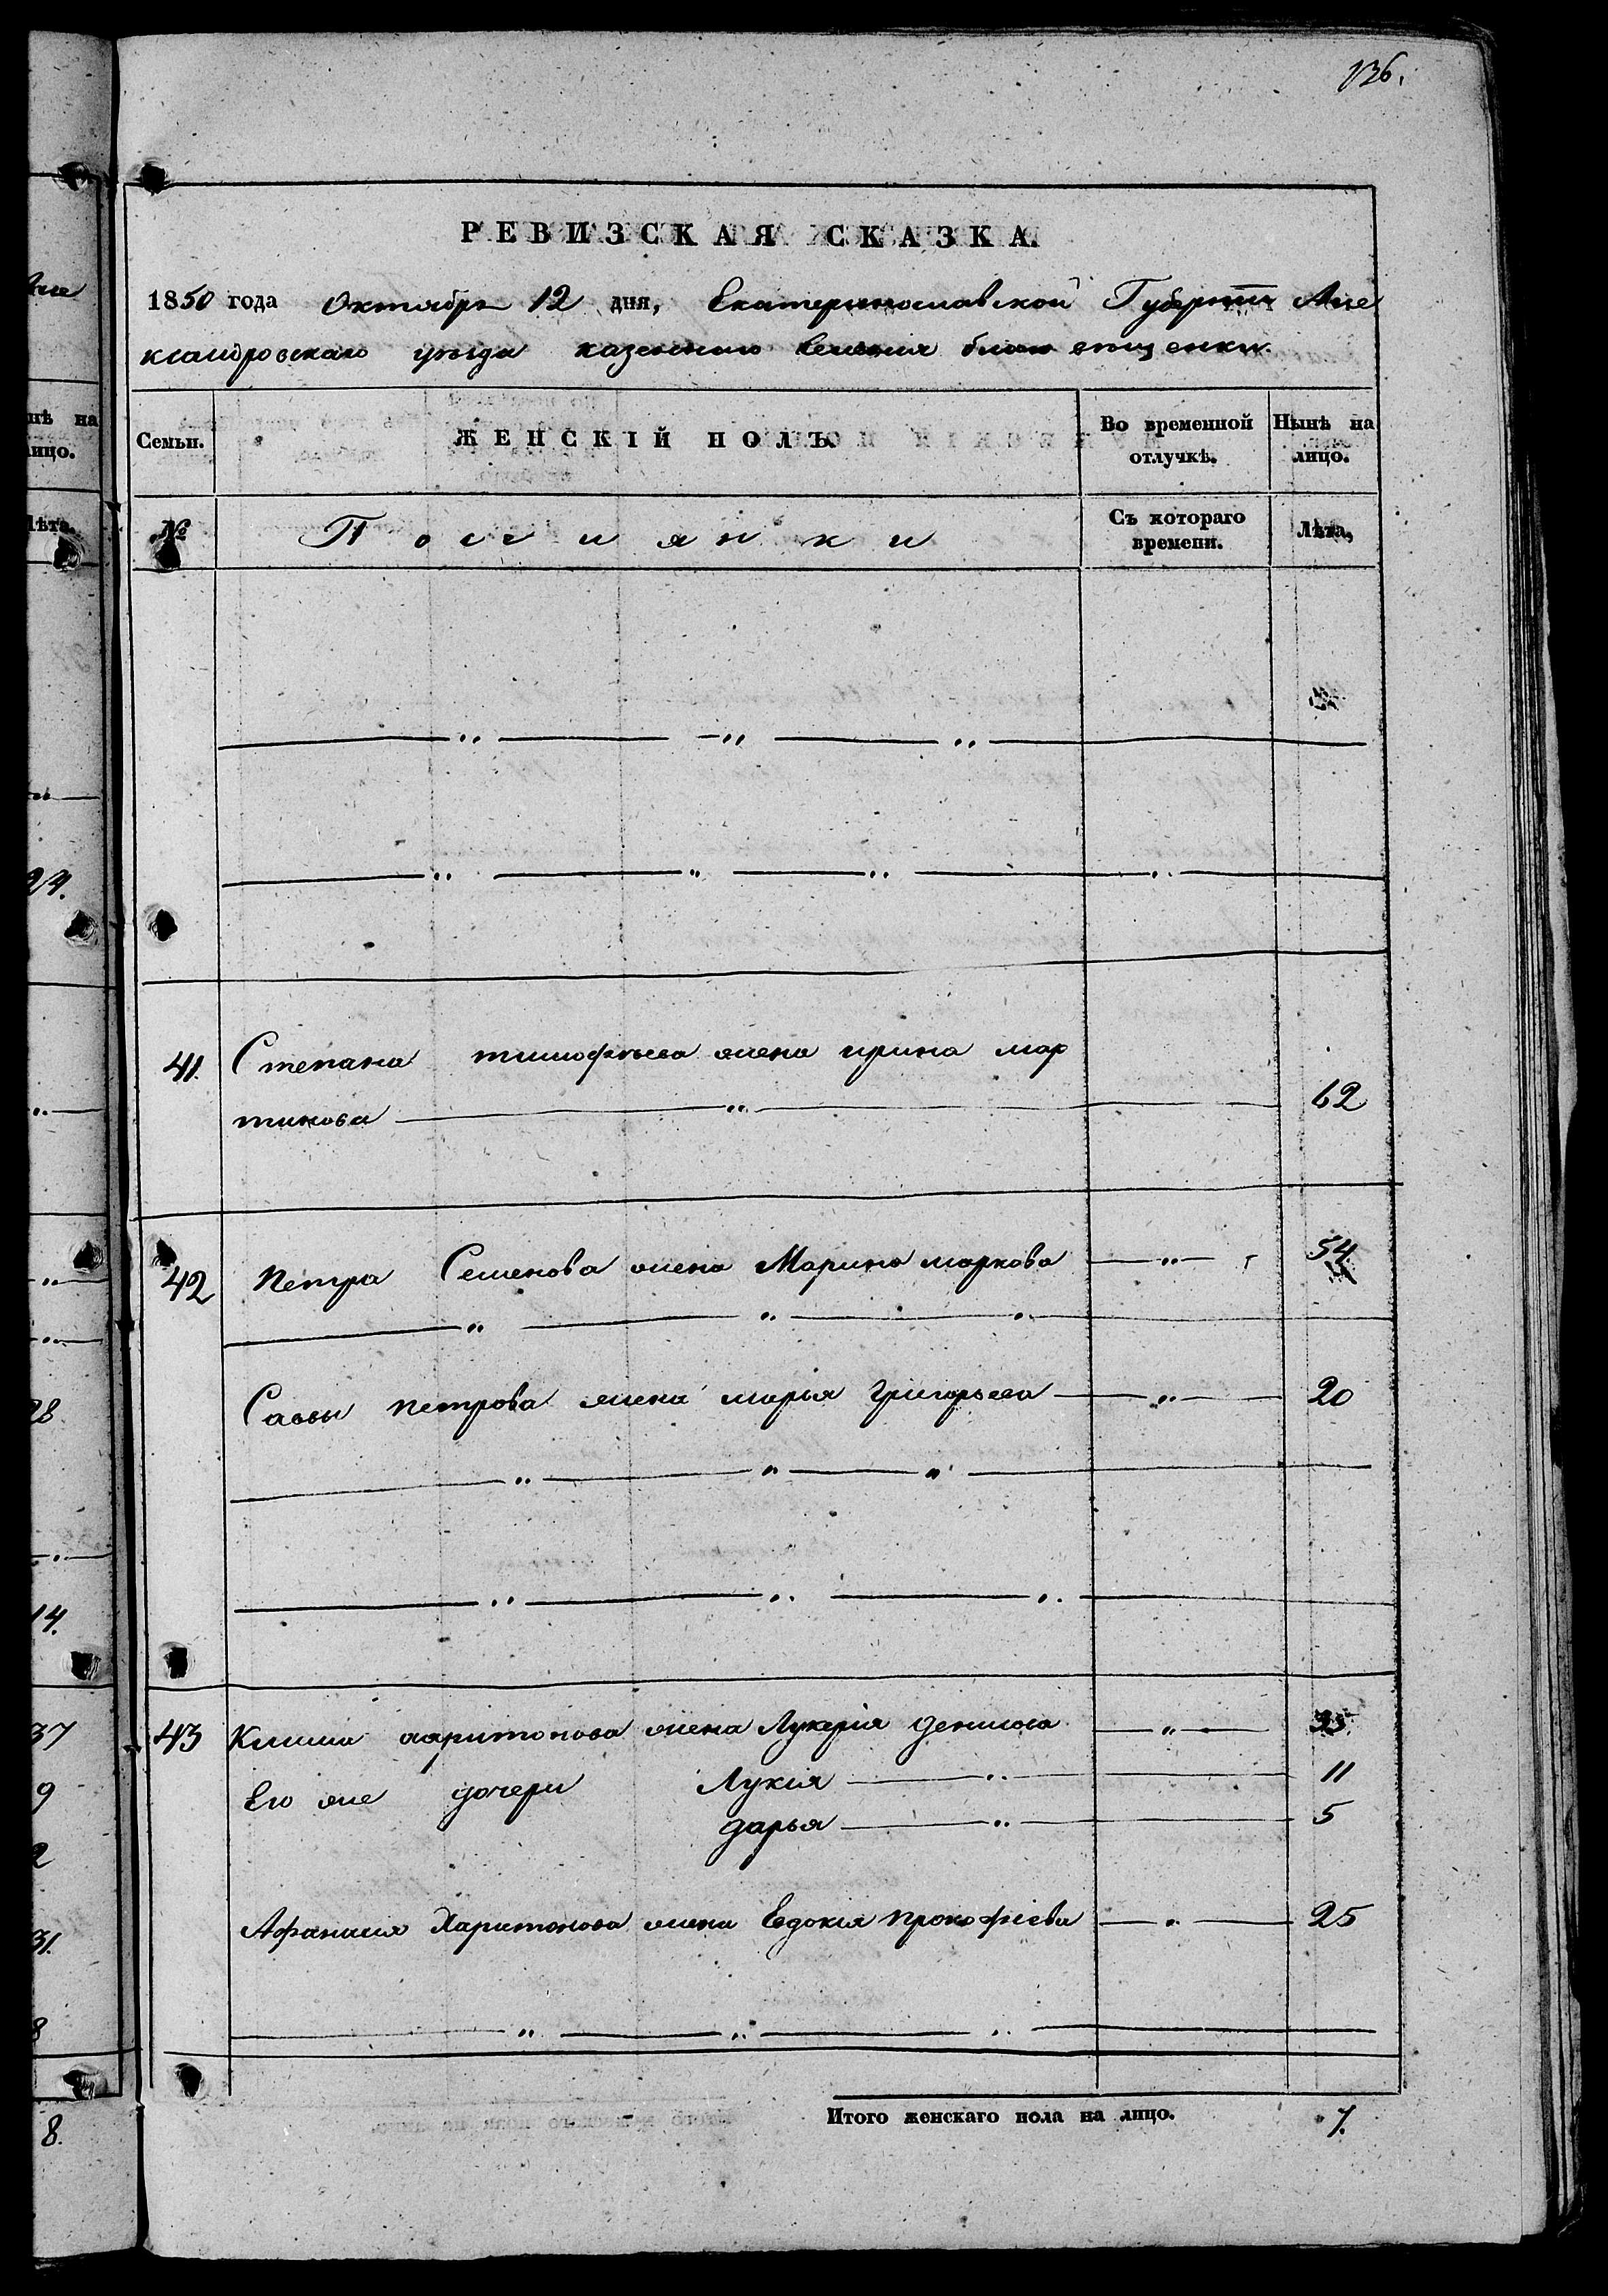 136.
РЕВИЗСКАЯ СКАЗКА.
1850 года Октября 12 дня, Екатеринославской Губернии Але
ксандровскаго уѣзда казеннаго селенія
Семьи. ЖЕНСКІЙ ПОЛЪ. Во временной отлучкѣ. Нынѣ на лицо.
№ Поселянки Съ котораго времени. Лѣта,
41. Степана тимофѣева жена ирина мар
тинова 62
42 Петра Семенова жена Марина маркова 54
Саввы петрова жена марья григорьева 20
43 Клима харитонова жена Лукерія денисова
Его же дочери Лукія 11
дарья 5
Афанасія Харитонова жена Евдокія прокофіева 25
Итого женскаго пола на лицо. 7.